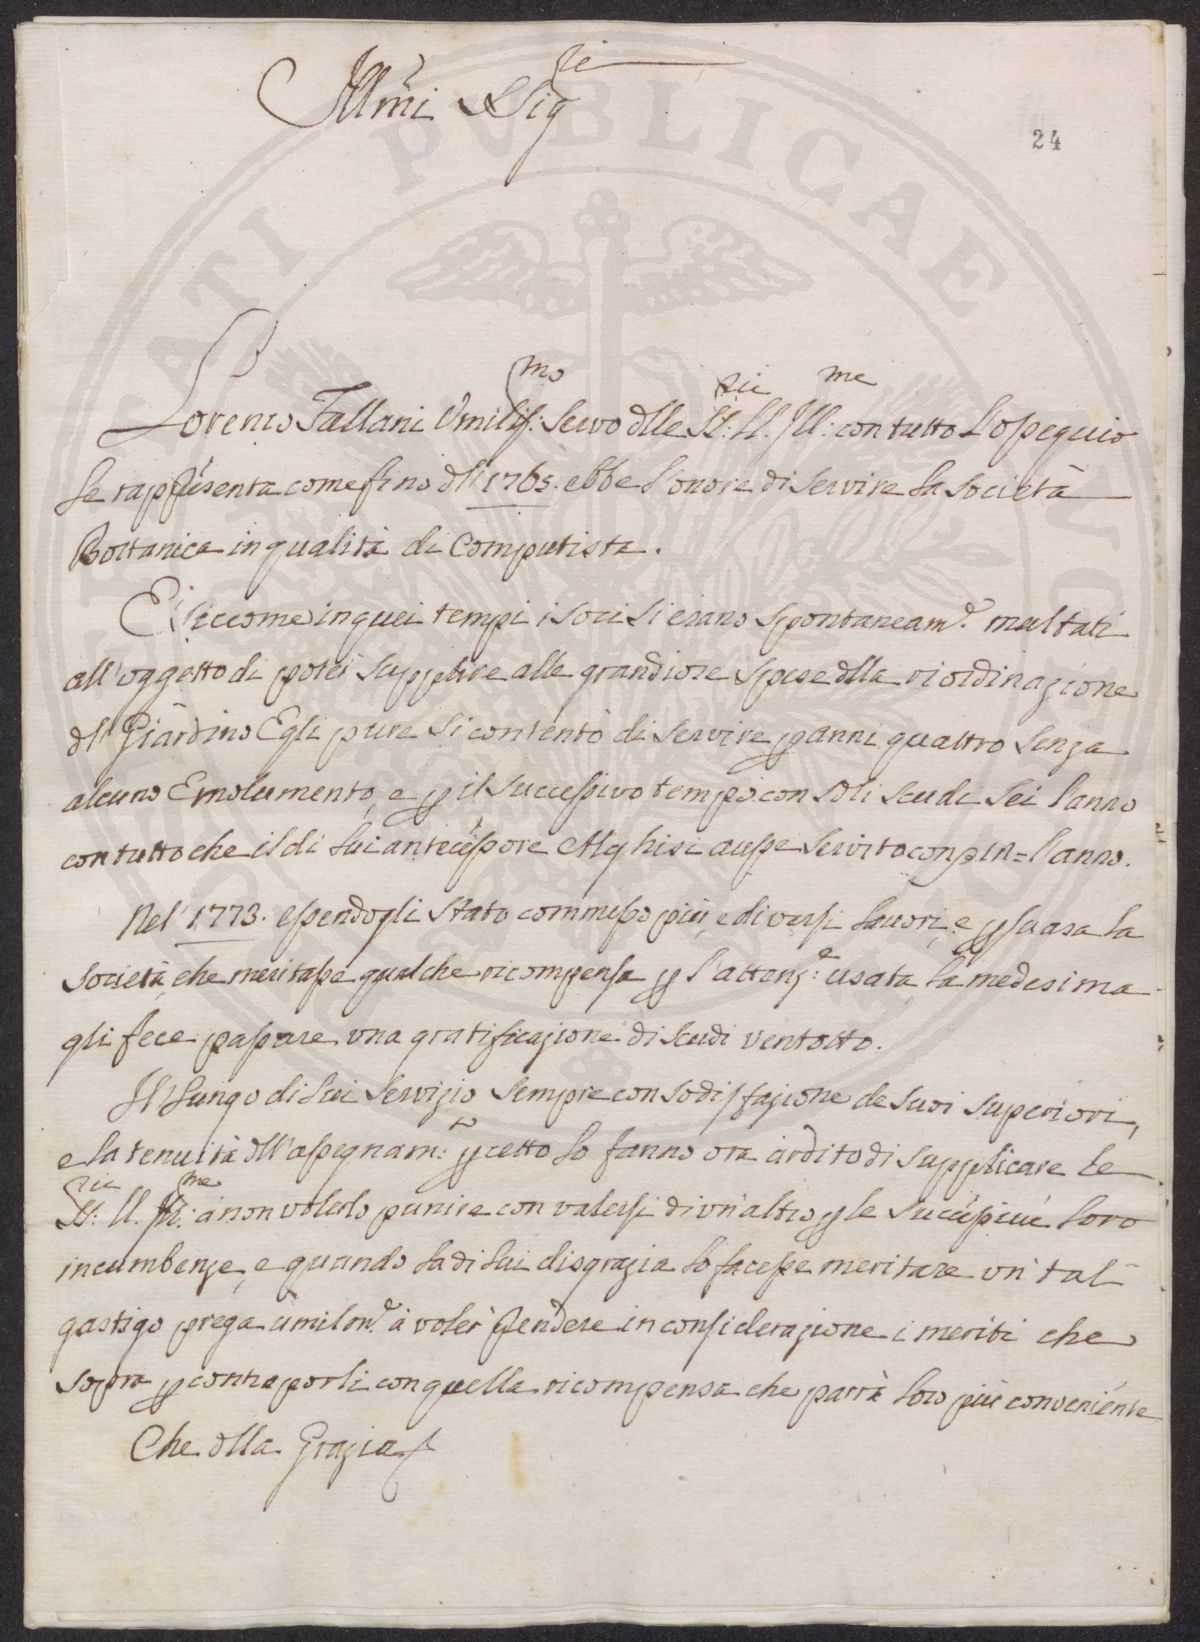 Ill̃mi Sig:re
24
Lorenzo Fallani Umiliss:mo Servo dlle SS:rie LL. Ill:me con tutto l'ossequio
le rappñsenta come fino dl' 1765. ebbe l'onore di servire la Società
Bottanica in qualità di Computista.
E siccome in quei tempi i Soci si erano spontaneam:e multati
all'oggetto di poter supplire alle grandiose spese dlla riordinazione
dl' Giardino Egli pure si contentò di servire p anni quattro senza
alcuno Emolumento, e p il successivo tempo con soli scudi sei l'anno
con tutto che il di lui antecessore Alghisi avesse servito con l'anno.
Nel' 1773. essendogli stato commesso più, e diversi lavori, e psuasa la
Società, che meritasse qualche ricompensa p l'attenz:e usata, la medesima
gli fece passare una gratificazione di scudi ventotto.
Il lungo di lui servizio sempre con sodisfazione de suoi superiori,
e la tenuità dll'assegnam:to pcetto lo fanno ora ardito di supplicare le
SS:rie LL. Ill:me a non volerlo punire con valersi di un'altro p le successive loro
incumbenze, e quando la di lui disgrazia lo facesse meritare un' tal'
gastigo prega umilm:e a voler' pendere in considerazione i meriti che
sopra p contraporli con quella ricompensa che parrà loro più conveniente
Che dlla Grazia